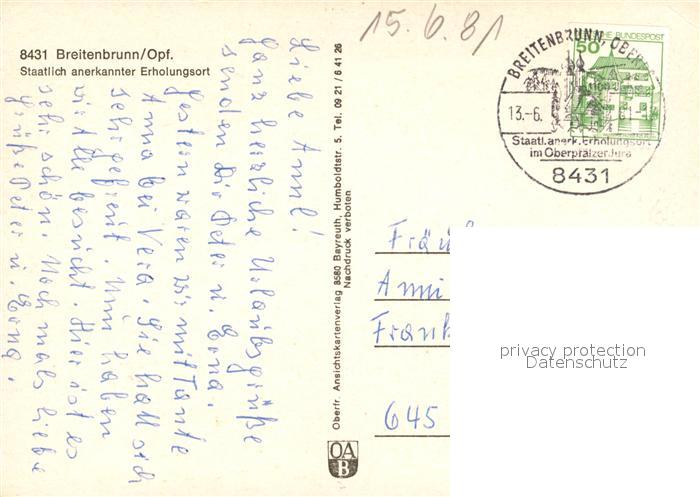 8431 Breitenbrunn/Opf.
Staatlich anerkannter Erholungsort
15.6.81
BREITENBRUNN, OBERPF
DEUTSCHE BUNDESPOST
50
13.-6.
81-
Staatl. anerk. Erholungsort
im Oberpfälzer Jura
8431
Liebe Anni!
Ganz herzliche Urlaubsgrüße
senden Dir Peter u. Erna.
Gestern waren wir mit Tante
Anna bei Vera. Sie hat sich
sehr gefreut. Nun haben
wir alle besucht. Hier ist es
sehr schön. Noch mals liebe
Grüße Peter u. Erna.
Oberfr. Ansichtskartenverlag 8580 Bayreuth, Humboldtstr. 5. Tel. 09 21 / 6 41 26
Nachdruck verboten
OA
B
Fräul
Anni
Frank
645
privacy protection
Datenschutz